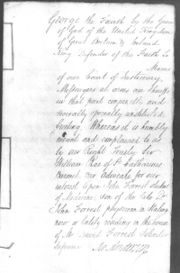 George the Fourth by the Grace
of God of the United Kingdom
of Great Britain & Ireland
King Defender of the Faith To
Macers
of our Court of Justiciary,
Messengers at arms our Sheriffs
in that part conjunctly and
severally specially constituted
Greeting Whereas it is humbly
meant and complained to us
by our Right Trusty Sir
William Rae of St Catherines
Baronet our Advocate for our
interest upon John Forrest student
of Medicine son of the late Dr
John Forrest physician in Stirling
now or lately residing in the house
of the said Forrest